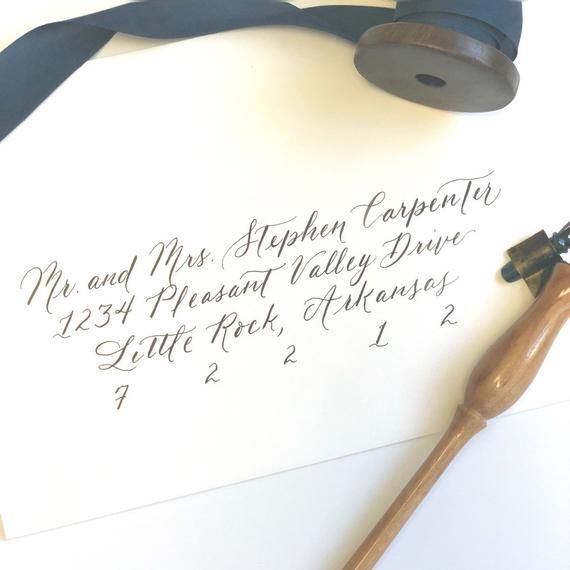 Mr. and Mrs. Stephen Carpenter
1234 Pleasant Valley Drive
Little Rock, Arkansas
7 2 2 1 2